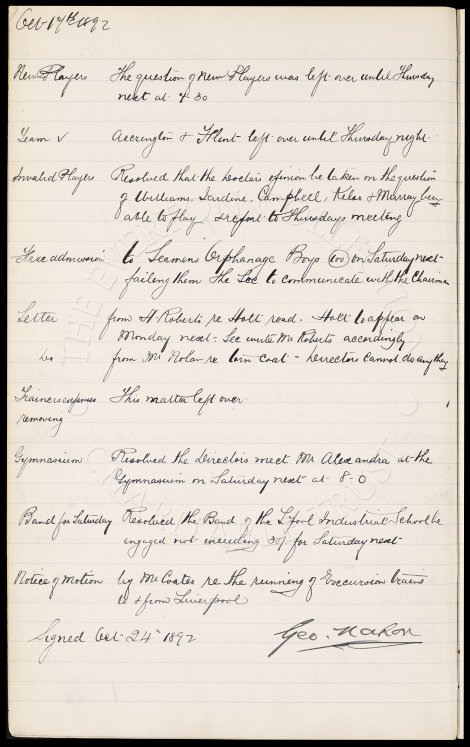 Oct 17th 1892
New Players The question of New Players was left over until Thursday
next at 4-30
Team v Accrington & Flint left over until Thursday night.
Invalid Players Resolved that the Doctors opinion be taken on the question
of Williams, Jardine, Campbell, Kelso & Murray being
able to play & report to Thursdays meeting
Free admission to Seamens Orphanage Boys (100) on Saturday next
failing them The Sec to communicate with the Chairman
Letter from H. Roberts re Holt read. - Holt to appear on
Monday next - Sec write Mr Roberts accordingly
Do from Mr Nolan re torn coat - Directors cannot do anything
Trainers expenses This matter left over
removing
Gymnasium Resolved the Directors meet Mr Alexandra at the
Gymnasium on Saturday next at 8-0
Band for Saturday Resolved the Band of the L'pool Industrial School be
engaged not exceeding 30/- for Saturday next
Notice of Motion by Mr Coates re the running of Excursion trains
to & from Liverpool
Signed Oct 24th 1892 Geo. Mahon